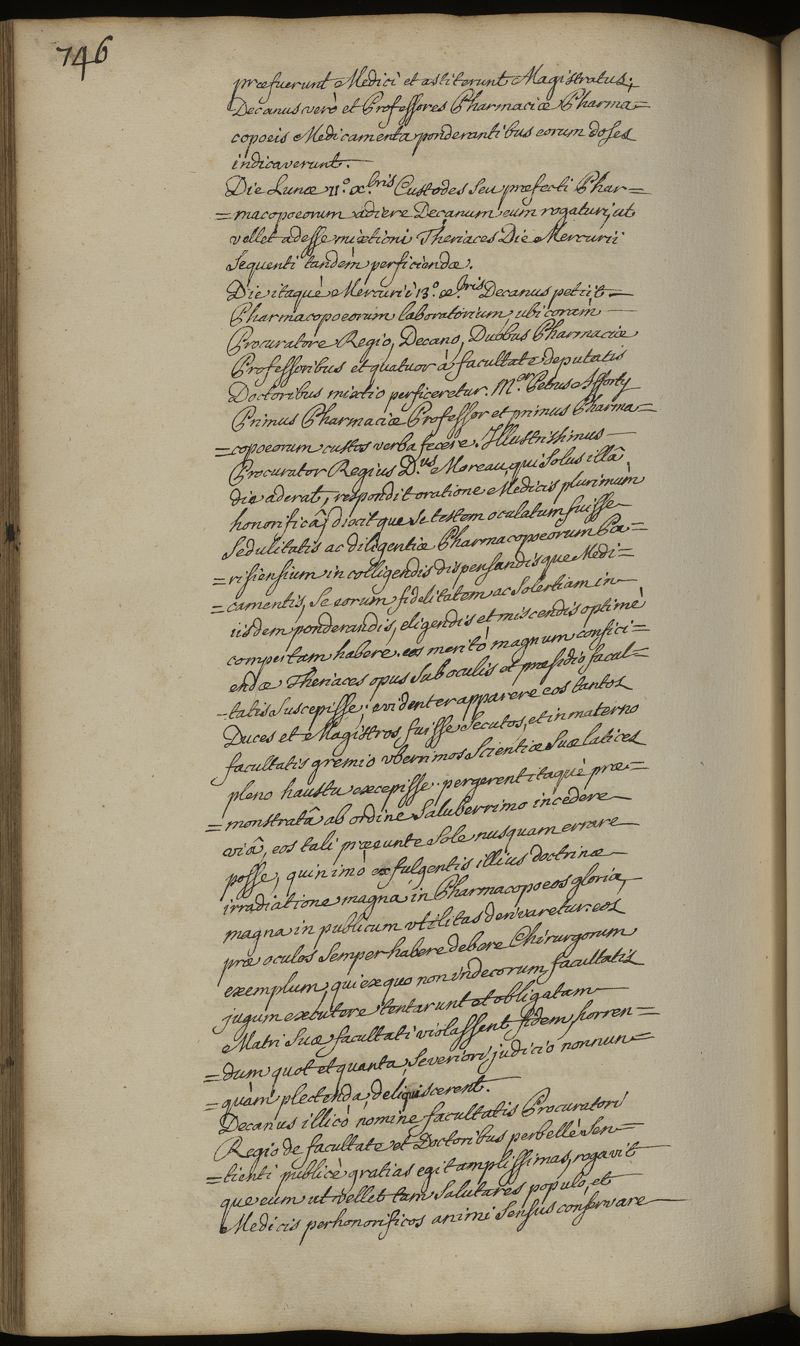 746
præfuerunt Medici et astiterunt Magistratus;
Decanus verò et Professores Pharmaciæ Pharma=
copoeis Medicamenta ponderantibus eorum doses
indicaverunt.
Die Lunæ 11.º x.bris Custodes seu præfecti Phar=
=macopoeorum adiere Decanum eum rogaturi, ut
vellet adesse mixtioni Theriaces Die Mercurii
sequenti tandem perficiendæ.
Die itaquè Mercurii 13.º x.bris Decanus petiit
Pharmacopoeorum laboratorium ubi coram
Procuratore Regio, Decano, Duobus Pharmaciæ
Professoribus et quatuor à facultate deputatis
Doctoribus mixtio perficeretur. M.er Petrus Afforty
Primus Pharmaciæ Professor et primus Pharma=
=copoeorum custos verba fecere. Illustrissimus
Procurator Regius D.us Moreau, qui solus illâ
die aderat, respondit oratione Medicis plurimùm
honorificâ, dixitque se testem oculatum fuisse
sedulitatis ac diligentiæ Pharmacopoeorum Pa=
=risiensium in colligendis dispensandisque Medi=
=camentis, se eorum fidelitatem ac solertiam in
iisdem ponderandis, eligendis et miscendis optimè
compertam habere. eos meritò magnum confici=
endæ Theriaces opus sub oculis et præsidio facul=
-tatis suscepisse; evidenter apparere eos tantos
Duces et Magistros fuisse secutos, et in materno
facultatis gremio uberrimos scientiæ suæ latices
pleno haustu excepisse. pergerent itaquè præ=
=monstratâ ab ordine saluberrimo incedere
viâ, eos tali præeunte sole nusquam errare
posse, quinimò ex fulgentis illius doctrinæ
irradiatione magna in Pharmacopoeos gloria,
magna in publicum utilitas derivaretur. eos
præ oculos semper habere debere Chirurgorum
exemplum, qui ex quo non indecorum facultatis
jugum excutere tentarunt et obligatam
Matri suæ facultati violassent fidem, horren=
=dum quot et quanta, severiori judicio nonnun=
=quàm plectenda, deliquiscerent.
Decanus illicò nomine facultatis Procuratori
Regio de facultate et Doctoribus perbellè sen=
=tienti publicè gratias egit amplissimas, rogavit
que eum ut vellet tam salutares populo, et
Medicis perhonorificos animi sensus conservare